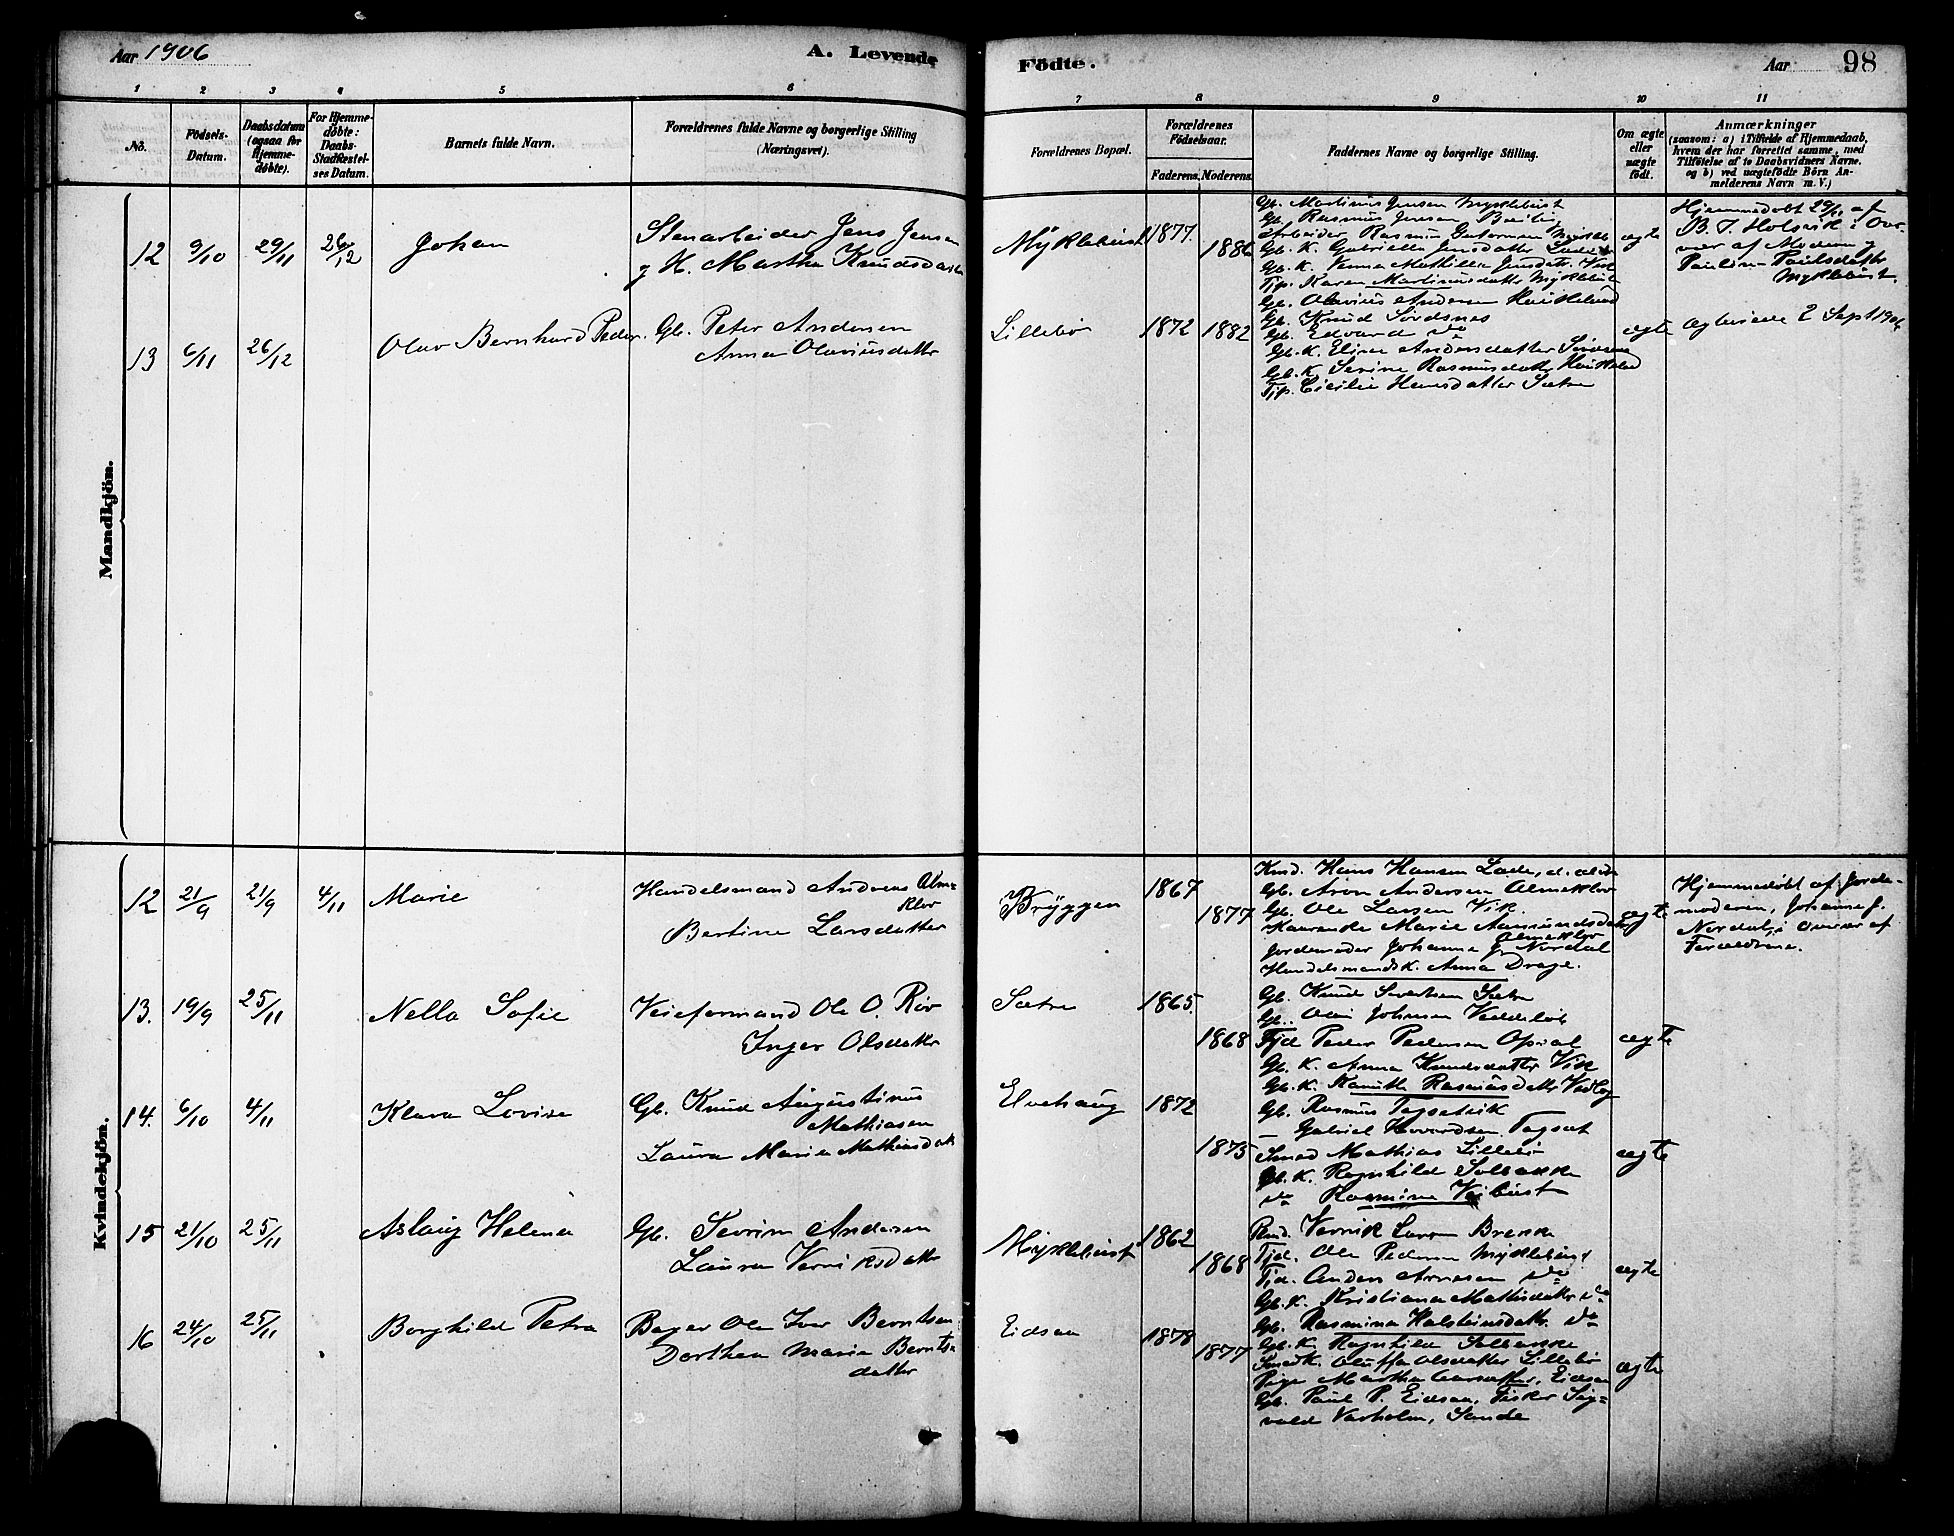 Aar 1906
A. Levende
Födte.
Aar
98
1 2 3 4 5 6 7 8 9 10 11
No.
Födsels-
Datum.
Daabsdatum
(ogsaa for
Hjemme-
døbte).
For Hjemme-
døbte:
Daabs-
Stadfæstel-
ses Datum.
Barnets fulde Navn.
Forældrenes fulde Navne og borgerlige Stilling
(Næringsvei).
Forældrenes Bopæl.
Forældrenes
Födselsaar.
Faderens. Moderens.
Faddernes Navne og borgerlige Stilling.
Om ægte
eller
uægte
födt.
Anmærkninger
(saasom: a) i Tilfælde af Hjemmedaab,
hvem der har forrettet samme, med
Tilföielse af to Daabsvidners Navne.
og b) ved uægtefödte Börn An-
melderens Navn m. V.)
Mandkjön.
12 9/10 29/11 26/12
Johan
Stenarbeider Jens Jensen
og H. Martha Knudsdatter
Myklebust 1877 1886
Gb. Martinus Jensen Myklebust
Gb. Rasmus Jensen
Arbeider Rasmus
Gb. K. Gabrielle Jensdatter
Gb. K. Mathilde Jensdatr. Vik
Tjp. Karen Martinusdatter Myklebust
ægte
Hjemmedøbt 29/11 af
B. T. Holsvik i Over-
vær af Moderen og
Pauline Paulsdatter
Myklebust.
13 6/11 26/12
Olav Bernhard Peder.
Gb. Peter Andersen
Anna Olaviusdattr
Lillebø 1872 1882
Gb. Olavius Andersen Haukeland
Gb. Knud Sørdsnes
Gb. Edvard do
Gb. K. Elise Andersdatter
Gb. K. Serine Rasmusdattr Haukeland
Tjp. Cecilie Hansdatter Sætre
ægte
Ægteviede 2 Sept 1906
Kvindekjön.
12 21/9 21/9 4/11
Marie
Handelsmand Andreas Alme-
klov
Bertine Larsdatter
Bryggen 1867 1877
Hans Hansen
Gb. Aron Andersen Almeklov
Gb. Ole Larsen Vik.
Marie Aamundsdatter
Almeklov
Jordemoder Johanne J. Nordal
Handelsmandsk. Anna Drage.
ægte
Hjemmedøbt af Jorde-
moderen, Johanne J.
Nordal, i Overvær af
Forældrene.
13. 19/9 25/11
Nella Sofie
Veiformand Ole O. Röv
Inger Olsdattr
Sætre 1865. 1868
Gb. Knud Sivertsen Sætre
Gb. Johnsen
Tjd Peder Pedersen Opsal
Gb. K. Anna Knudsdattr Vik
Gb. K. Rasmusdattr
ægte
14. 6/10 4/11
Klara Lovise
Gb. Knud Augustinus
Mathiasen
Laura Marie Mathiasdatr
Elvehaug 1872 1875
Gb. Rasmus
Gabriel
Smed Mathias Lillebø
Gb. K. Ragnhild
do Rasmine Veibust
ægte
15 21/10 25/11
Aslaug Helene
Gb. Severin Andersen
Laura Verviksdattr
Myklebust 1862 1868
Vervik Larsen Brenk
Tjd. Ole Pedersen Myklebust
Tjd. Anders Arnesen do
Gb. K. Kristiana Mathisdattr do
Gb. Rasmine Halsteinsdattr. do
ægte
16 24/10 25/11
Borghild Petra
Bager Ole Iver Berntsen
Dorthea Marie Bernts-
datter
Eidsaa 1878 1877
Gb. K. Ragnhild
Smedk. Oluffa Olsdatter Lillebø
Pige Martha Eidsaa
Gb. Paul P. Eidsaa, Fisker Sig-
vald Varholm, Sande
ægte